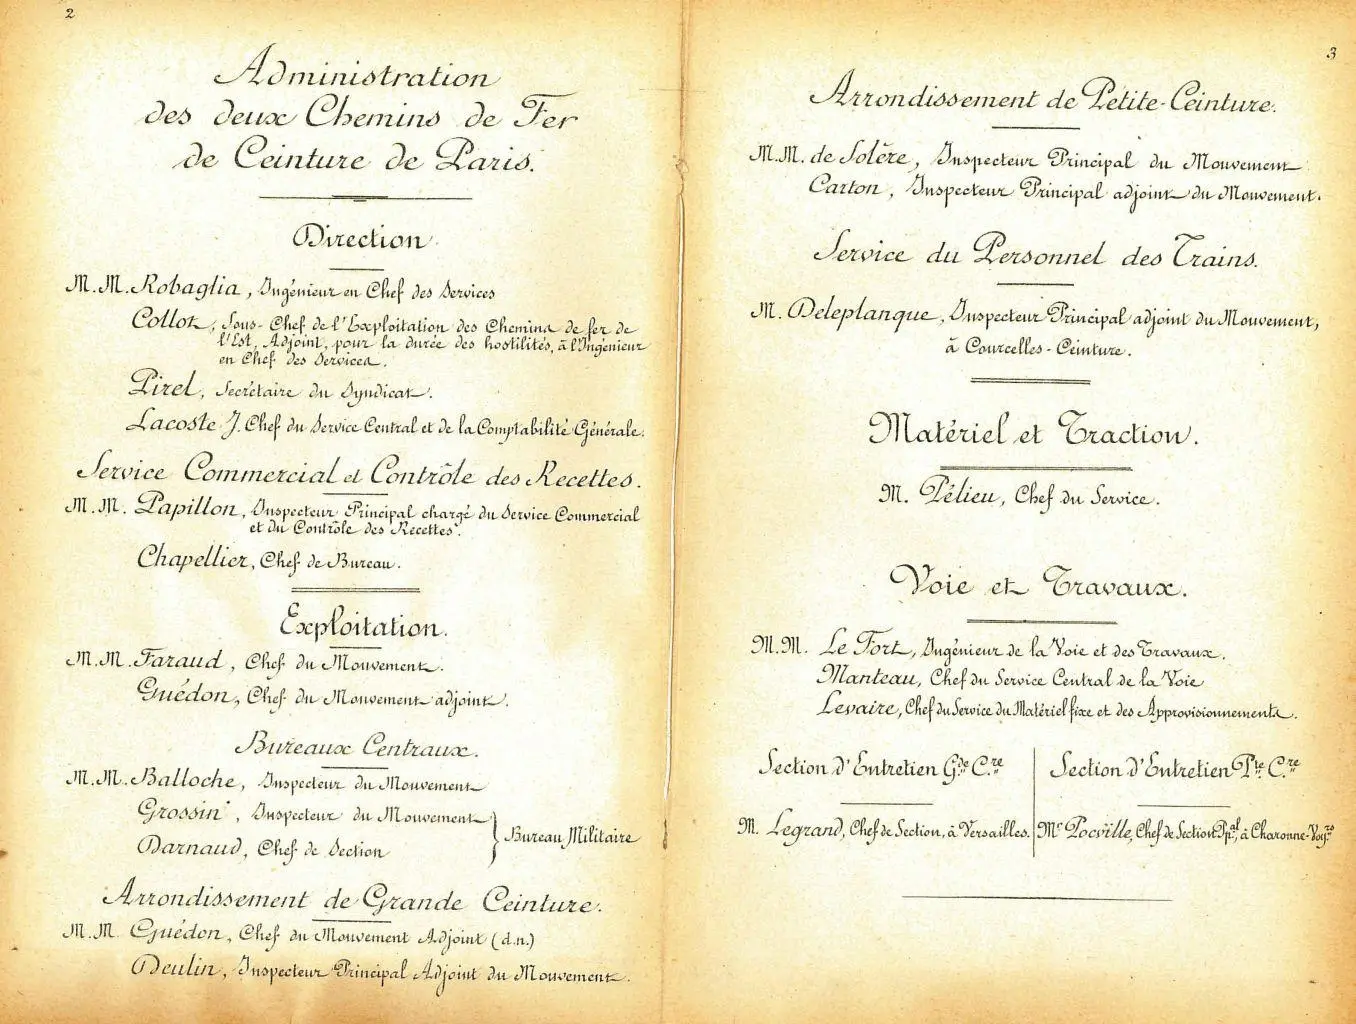 2
Administration
des deux Chemins de Fer
de Ceinture de Paris.
Direction
M.M. Robaglia, Ingénieur en Chef des Services
Collot, Sous-Chef de l'Exploitation des Chemins de fer de
l'Est, Adjoint, pour la durée des hostilités, à l'Ingénieur
en Chef des Services.
Pirel, Secrétaire du Syndicat.
Lacoste J. Chef du Service Central et de la Comptabilité Générale.
Service Commercial et Contrôle des Recettes.
M.M. Papillon, Inspecteur Principal chargé du Service Commercial
et du Contrôle des Recettes.
Chapellier, Chef de Bureau.
Exploitation.
M.M. Faraud, Chef du Mouvement.
Guédon, Chef du Mouvement adjoint.
Bureaux Centraux.
M.M. Balloche, Inspecteur du Mouvement
Grossin, Inspecteur du Mouvement
Darnaud, Chef de Section
Bureau Militaire
Arrondissement de Grande Ceinture.
M.M. Guédon, Chef du Mouvement Adjoint (d.n.)
Deulin, Inspecteur Principal Adjoint du Mouvement.
3
Arrondissement de Petite-Ceinture.
M.M. de Solère, Inspecteur Principal du Mouvement
Carton, Inspecteur Principal adjoint du Mouvement.
Service du Personnel des Trains.
M. Deleplanque, Inspecteur Principal adjoint du Mouvement,
à Courcelles-Ceinture.
Matériel et Traction.
M. Pélieu, Chef du Service.
Voie et Travaux.
M.M. Le Fort, Ingénieur de la Voie et des Travaux.
Manteau, Chef du Service Central de la Voie
Levaire, Chef du Service du Matériel fixe et des Approvisionnements.
Section d'Entretien Gde Cre
M. Legrand, Chef de Section, à Versailles.
Section d'Entretien Pte Cre
Mr Pocville, Chef de Section Ppal, à Charonne-Voyrs